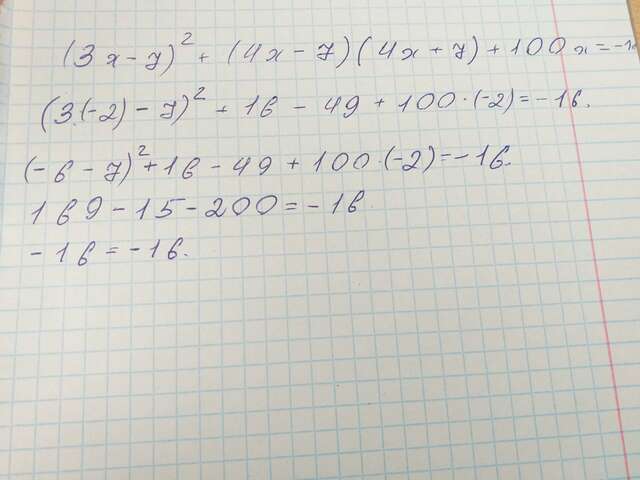 (3x-7)² + (4x-7)(4x+7)+100x=-16
(3·(-2)-7)² + 16 - 49 + 100·(-2)=-16.
(-6-7)²+16-49+100·(-2)=-16.
169-15-200=-16
-16=-16.